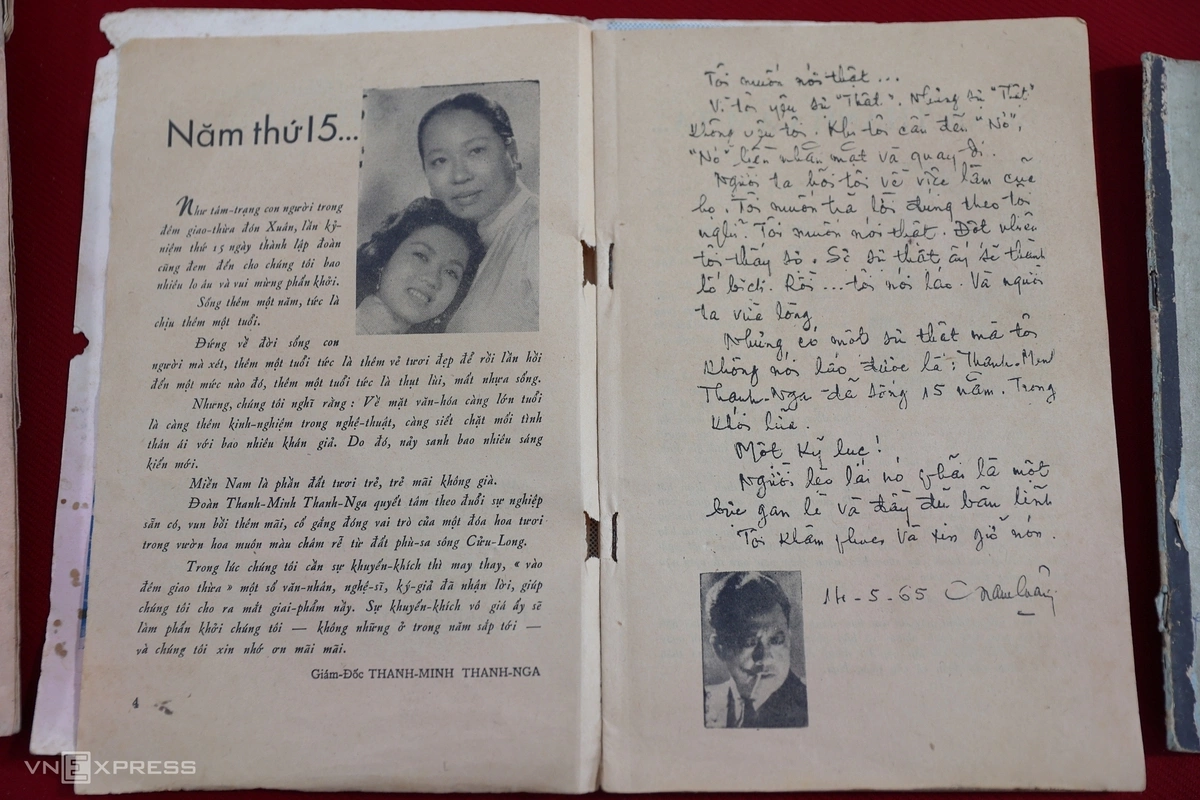 Năm thứ 15...
Như tâm-trạng con người trong
đêm giao-thừa đón Xuân, lần kỷ-
niệm thứ 15 ngày thành lập đoàn
cũng đem đến cho chúng tôi bao
nhiêu lo âu và vui mừng phấn khởi.
Sống thêm một năm, tức là
chịu thêm một tuổi.
Đứng về đời sống con
người mà xét, thêm một tuổi tức là thêm vẻ tươi đẹp để rồi lần hồi
đến một mức nào đó, thêm một tuổi tức là thụt lùi, mất nhựa sống.
Nhưng, chúng tôi nghĩ rằng : Về mặt văn-hóa càng lớn tuổi
là càng thêm kinh-nghiệm trong nghệ-thuật, càng siết chặt mối tình
thân ái với bao nhiêu khán giả. Do đó, nảy sanh bao nhiêu sáng
kiến mới.
Miền Nam là phần đất tươi trẻ, trẻ mãi không già.
Đoàn Thanh-Minh Thanh-Nga quyết tâm theo đuổi sự nghiệp
sẵn có, vun bồi thêm mãi, cố gắng đóng vai trò của một đóa hoa tươi
trong vườn hoa muôn màu châm rễ từ đất phù-sa sông Cửu-Long.
Trong lúc chúng tôi cần sự khuyến-khích thì may thay, « vào
đêm giao thừa » một số văn-nhân, nghệ-sĩ, ký-giả đã nhận lời, giúp
chúng tôi cho ra mắt giai-phẩm nầy. Sự khuyến-khích vô giá ấy sẽ
làm phấn khởi chúng tôi — không những ở trong năm sắp tới —
và chúng tôi xin nhớ ơn mãi mãi.
Giám-Đốc THANH-MINH THANH-NGA
4
Tôi muốn nói thật...
Vì tôi yêu sự "Thật". Nhưng sự "Thật"
không yêu tôi. Khi tôi cần đến "Nó",
"Nó" liền nhăn mặt và quay đi.
Người ta hỏi tôi về việc làm của
họ. Tôi muốn trả lời đúng theo tôi
nghĩ. Tôi muốn nói thật. Đột nhiên
tôi thấy sợ. Sợ sự thật ấy sẽ thành
lố bịch. Rồi ... tôi nói láo. Và người
ta vừa lòng
Nhưng có một sự thật mà tôi
không nói láo được là : Thanh-Minh
Thanh-Nga đã sống 15 năm. Trong
khói lửa.
Một kỷ lục !
Người lèo lái nó phải là một
bực gan lì và đầy đủ bản lĩnh
Tôi khâm phục và xin giở nón.
14-5-65
VNEXPRESS